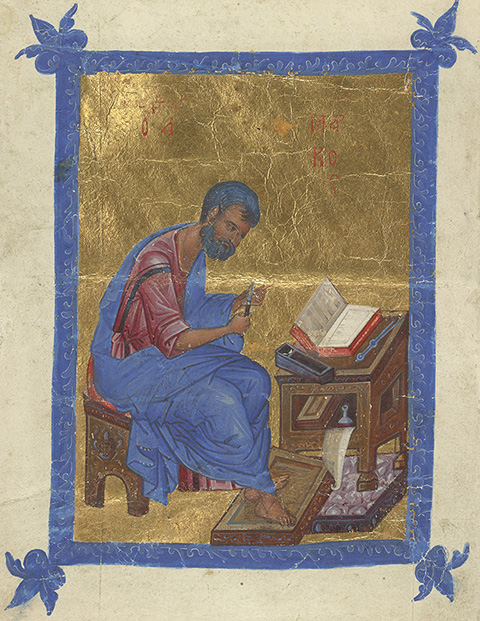 Ο Α ΜΑ
ΚΟ
ς